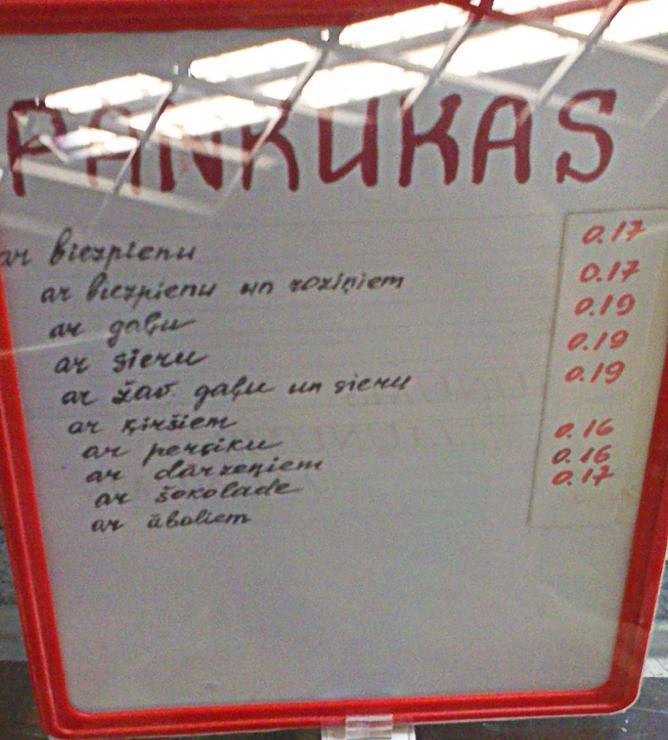 PANKUKAS
ar biezpienu 0.17
ar biezpienu un roziņiem 0.17
ar gaļu 0.19
ar sieru 0.19
ar žav. gaļu un sieru 0.19
ar ķiršiem
ar persiku 0.16
ar dārzeņiem 0.16
ar šokolade 0.17
ar āboliem